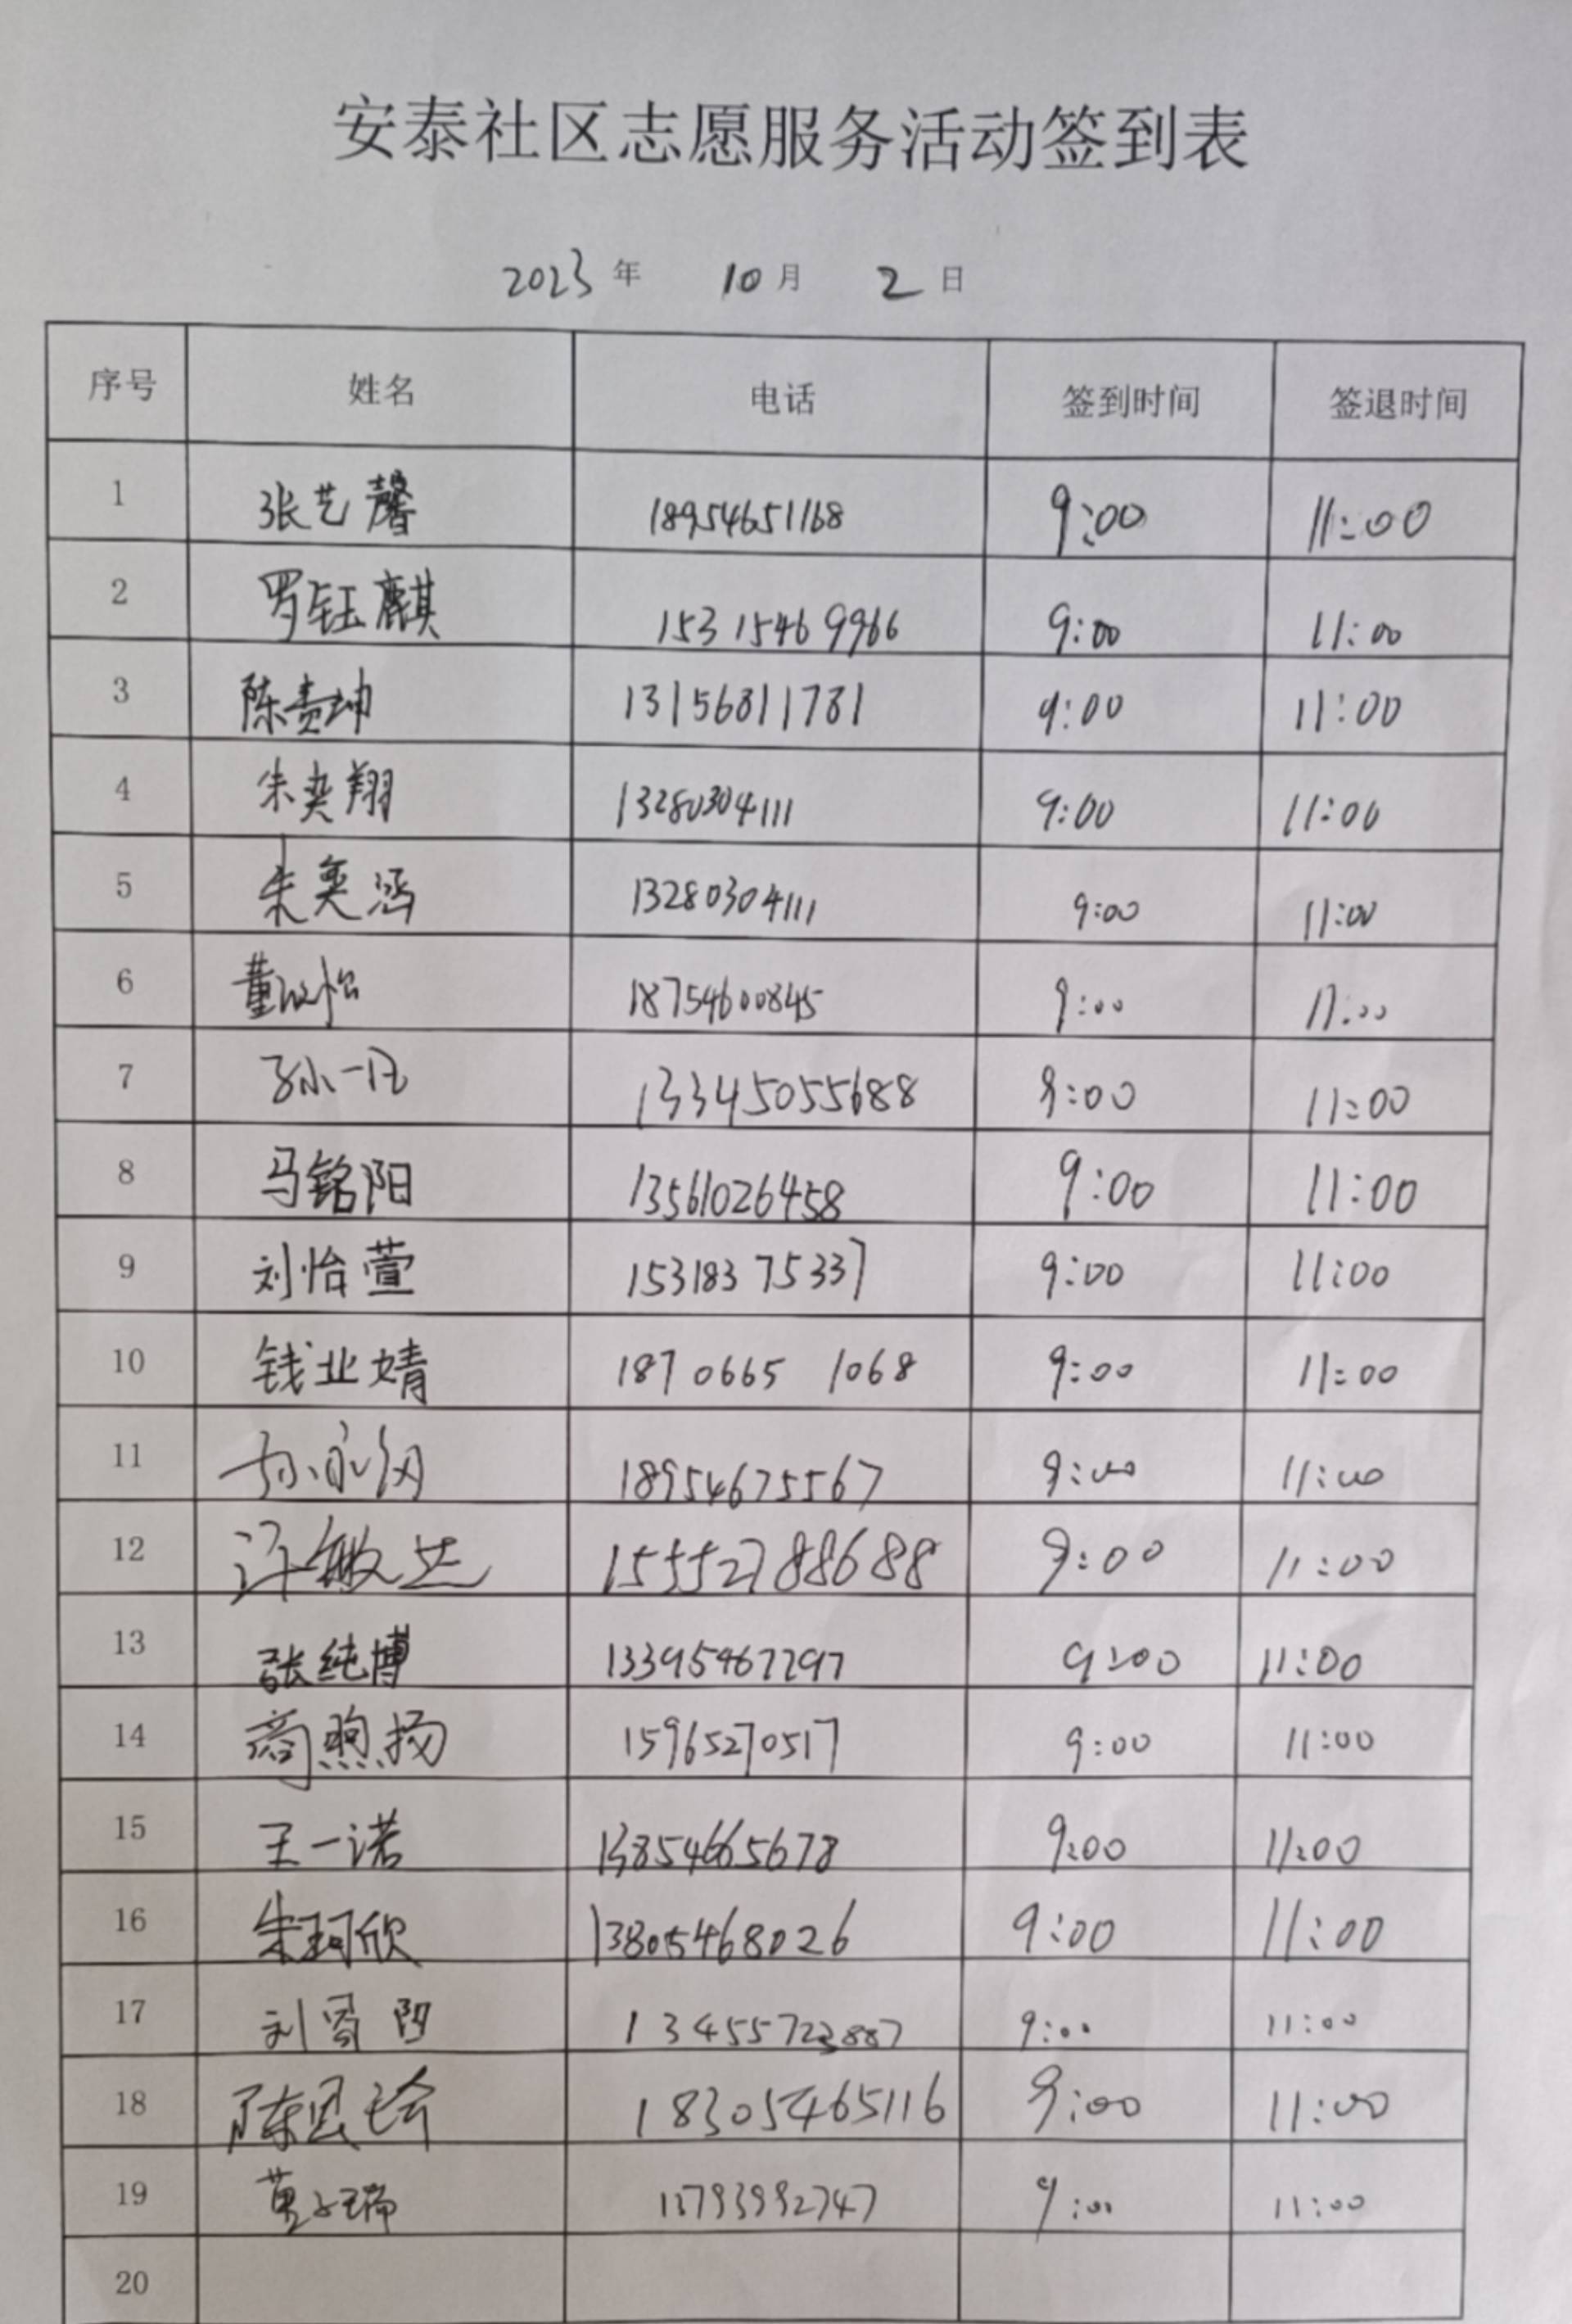 安泰社区志愿服务活动签到表
2023年 10月 2日
序号 姓名 电话 签到时间 签退时间
1 张艺馨 18954651168 9:00 11:00
2 罗钰麒 15315469966 9:00 11:00
3 陈贵坤 13156811781 9:00 11:00
4 朱奕翔 13280304111 9:00 11:00
5 朱奕涵 13280304111 9:00 11:00
6 董 怡 18754600845 9:00 11:00
7 孙一凡 13345055688 9:00 11:00
8 马铭阳 13561026458 9:00 11:00
9 刘怡萱 15318375337 9:00 11:00
10 钱业婧 187 0665 1068 9:00 11:00
11 孙永 18954675567 9:00 11:00
12 许敏 15552788688 9:00 11:00
13 张纯博 13395467297 9:00 11:00
14 商煦扬 15965270517 9:00 11:00
15 王一诺 13854665678 9:00 11:00
16 朱珂欣 13805468026 9:00 11:00
17 刘 阳 9:00 11:00
18 陈 瑜 18305465116 9:00 11:00
19 董 瑞 9:00 11:00
20